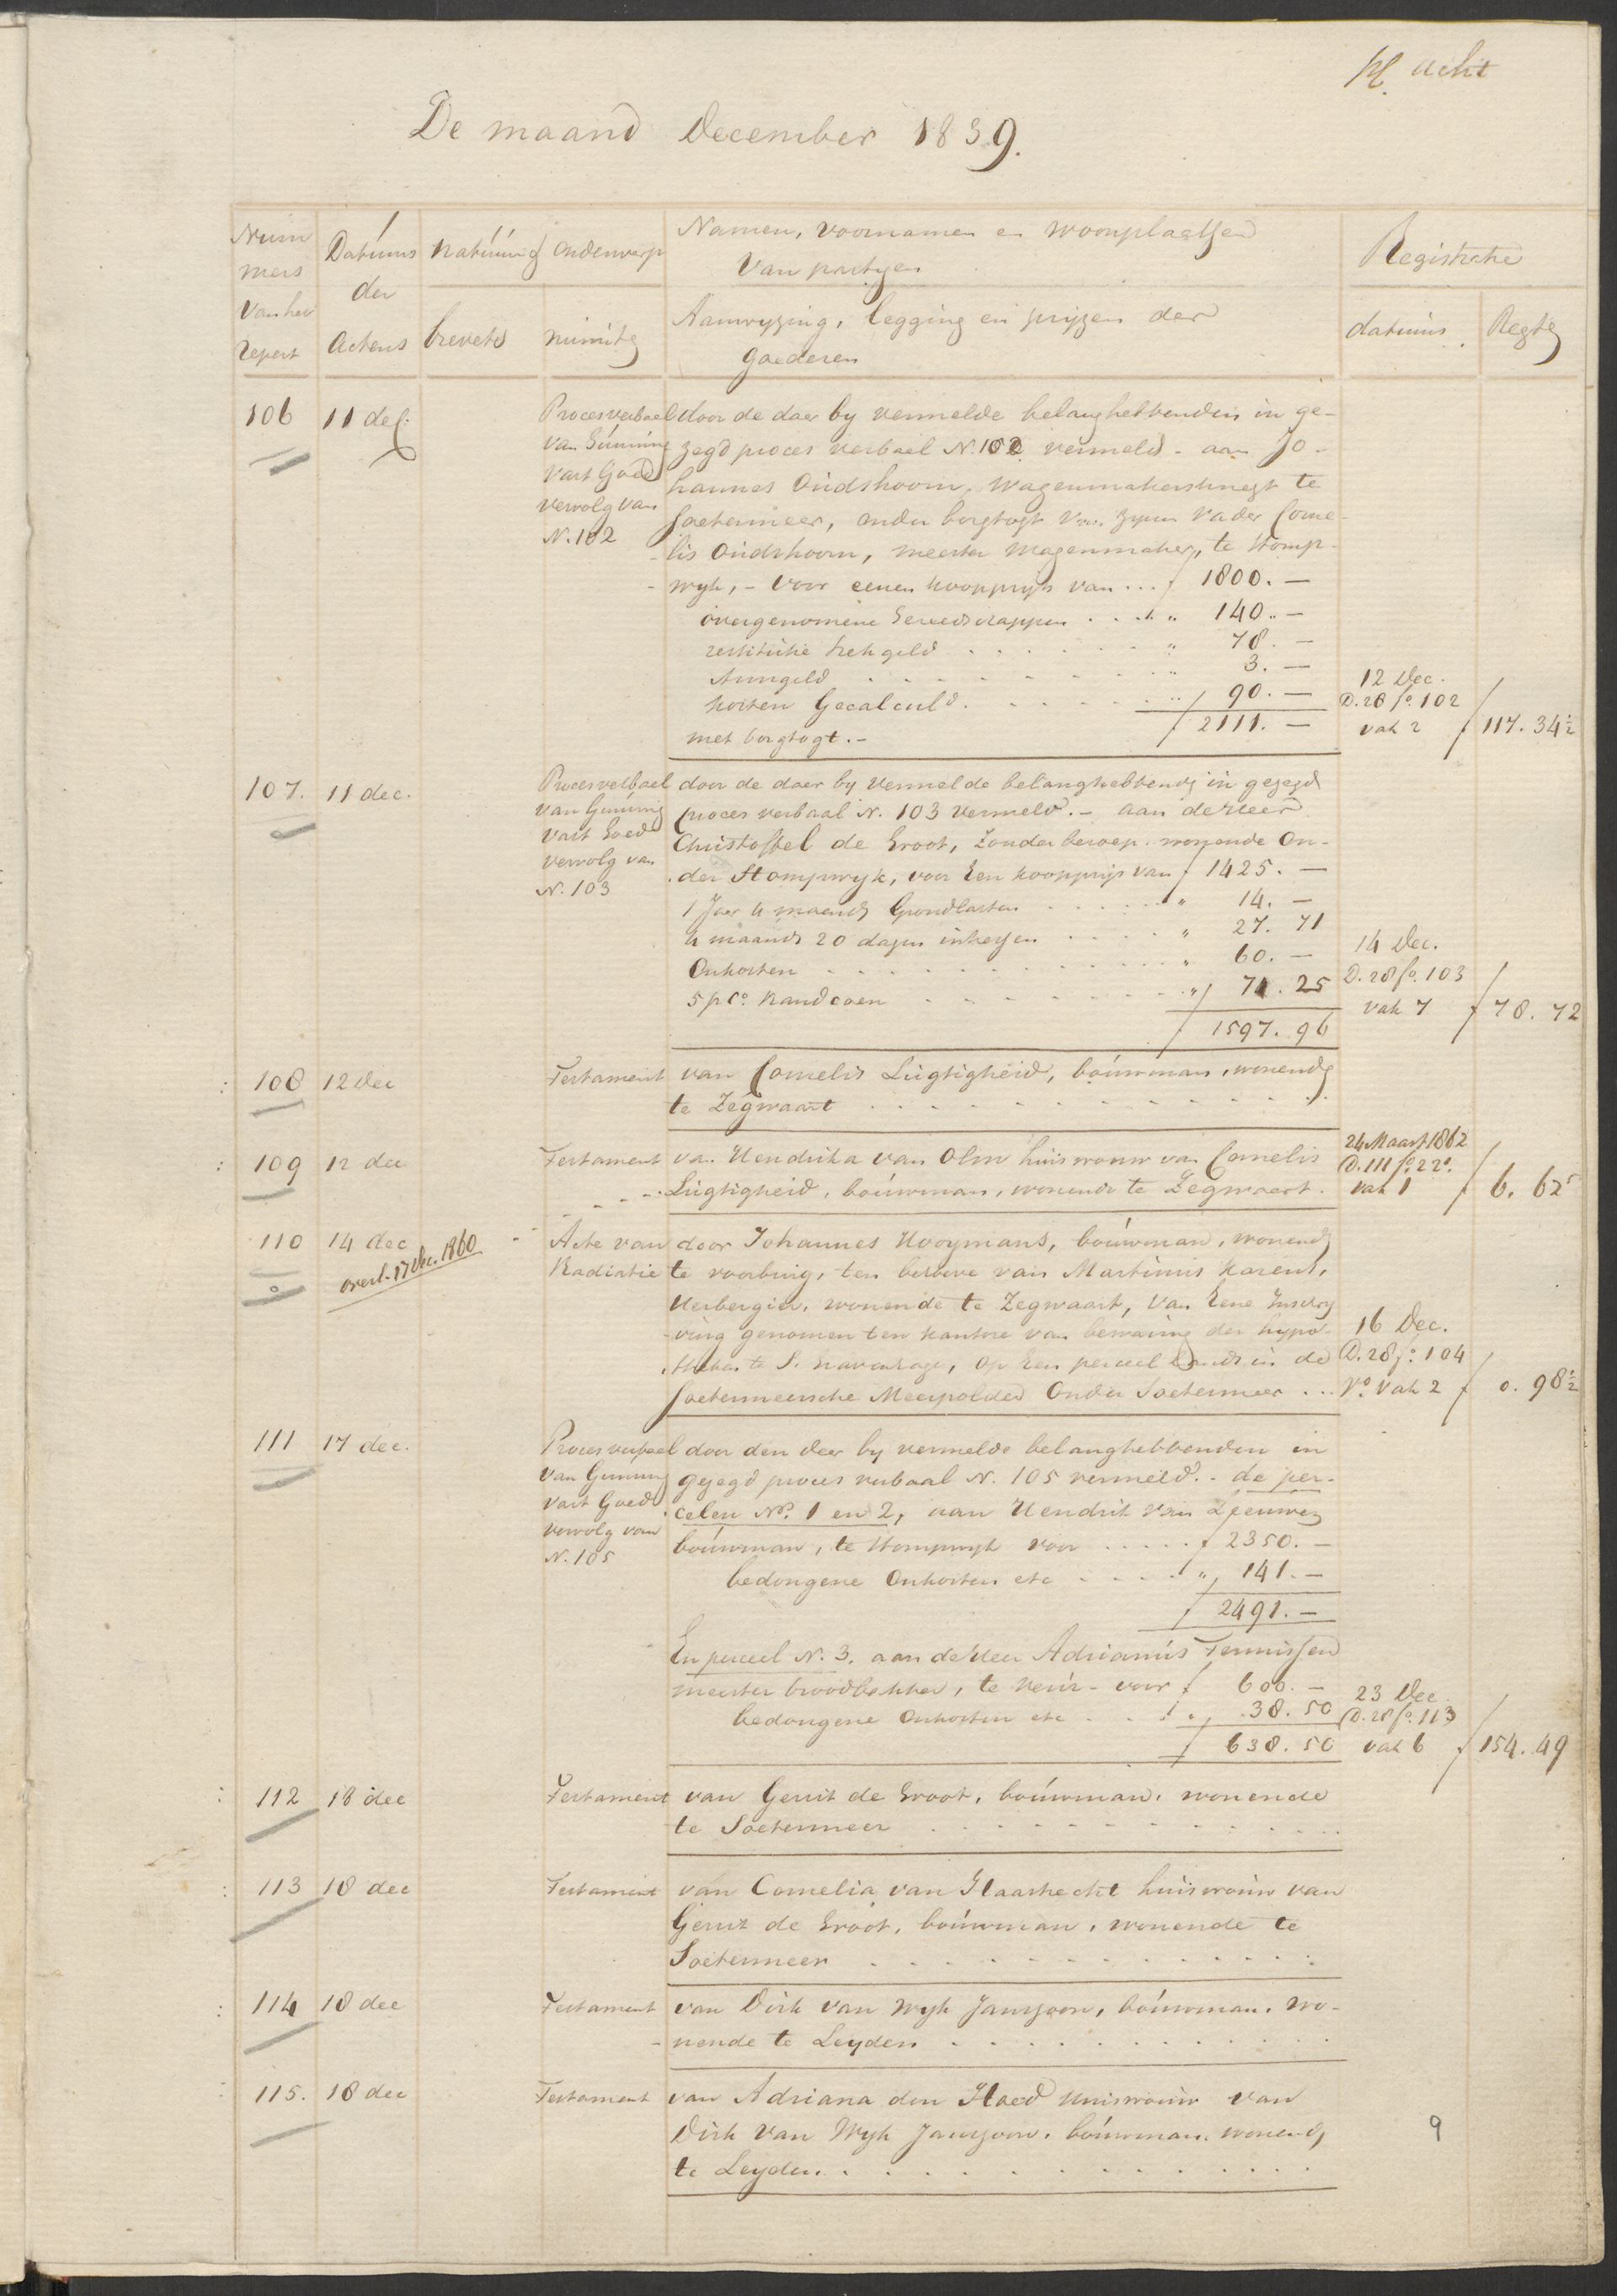 bl. acht
De maand December 1839.
Num
mers
van het
repert
Datums
der
Actens
natuur & onderwerp
brevets
minuts
Namen, voornamen en woonplaatsen
van partyen
Aanwyzing, legging en pryzen der
goederen
Registratie
datums
Regten
106 11 dec.
Procesverbael
van Gunning
vast Goed
vervolg van
N. 102
door de daer by vermelde belanghebbenden in ge-
zegd proces verbael N. 102 vermeld - aan Jo-
hannes Oudshoorn, Wagenmakersknegt te
Soetermeer, onder borgtogt van zynen vader Corne-
lis Oudshoorn, meester Wagenmaker, te Stomp-
wyk, - voor eenen koopprys van ... f 1800. —
overgenomene Gereedschappen . . . " 140. —
restitutie trekgeld . . . . . " 78. —
Armgeld . . . . . . " 3. —
kosten Gecalculd. . . . . " 90. —
met borgtogt. - f 2111. —
12 Dec.
D. 28 fo. 102
vak 2 f 117. 34½
107. 11 dec.
Procesverbael
van Gunning
vast Goed
vervolg van
N. 103
door de daer by vermelde belanghebbende in gezegd
proces verbaal N. 103 vermeld. - aan de Heer
Christoffel de Groot, zonder beroep, wonende on-
der Stompwyk, voor een koopprijs van f 1425. —
1 Jaer 4 maends Grondlasten . . . . " 14. —
4 maands 20 dagen intressen . . . . " 27. 71
Onkosten . . . . . . . " 60. —
5 p Co. Randcoen . . . . . " 71. 25
f 1597. 96
14 Dec.
D. 28 fo. 103
vak 7 f 78. 72
108 12 Dec
Testament van Cornelis Lugtigheid, bouwman, wonende
te Zegwaart . . . . . . . . .
109 12 dec
Testament van Hendrika van Olm huisvrouw van Cornelis
Lugtigheid, bouwman, wonende te Zegwaert.
24 Maart 1862
D. 111 fo. 22
vak 1 f 6. 62⁵
110 14 dec
overl. 17 Dec. 1860
Acte van
Radiatie
door Johannes Hooymans, bouwman, wonende
te voorburg, ten behoeve van Martinus Karens,
Herbergier, wonende te Zegwaart, van Eene Inschry
ving genomen ten kantore van bewaring der hypo-
theken te S. Gravenhage, op een perceel Lands in de
Soetermeersche Meerpolder onder Soetermeer ...
16 Dec.
D. 28 fo. 104
Vo. vak 2 f 0. 98½
111 17 dec.
Proces verbael
van Gunning
vast Goed
vervolg van
N. 105
door den daer by vermelde belanghebbenden in
gezegd proces verbaal N. 105 vermeld. - de per-
celen No. 1 en 2, aan Hendrik van Leeuwen
bouwman, te Stompwyk voor . . . . . f 2350. —
bedongene Onkosten etc . . . . " 141. —
f 2491. —
En perceel N. 3. aan de Heer Adrianus Teunissen
meester broodbakker, te Veur - voor f 600. —
bedongene Onkosten etc . . . " 38. 50
f 638. 50
23 Dec.
D. 28 fo. 113
vak 6 f 154. 49
112 18 dec
Testament van Gerrit de Groot, bouwman, wonende
te Soetermeer . . . . . . . . .
113 18 dec
Testament van Cornelia van Haastrecht huisvrouw van
Gerrit de Groot, bouwman, wonende te
Soetermeer . . . . . . . . .
114 18 dec
Testament van Dirk van Wyk Janszoon, bouwman, wo-
nende te Leyden . . . . . . . . .
115. 18 dec
Testament van Adriana den Hoed Huisvrouw van
Dirk van Wyk Janszoon, bouwman, wonende
te Leyden . . . . . . . . .
9